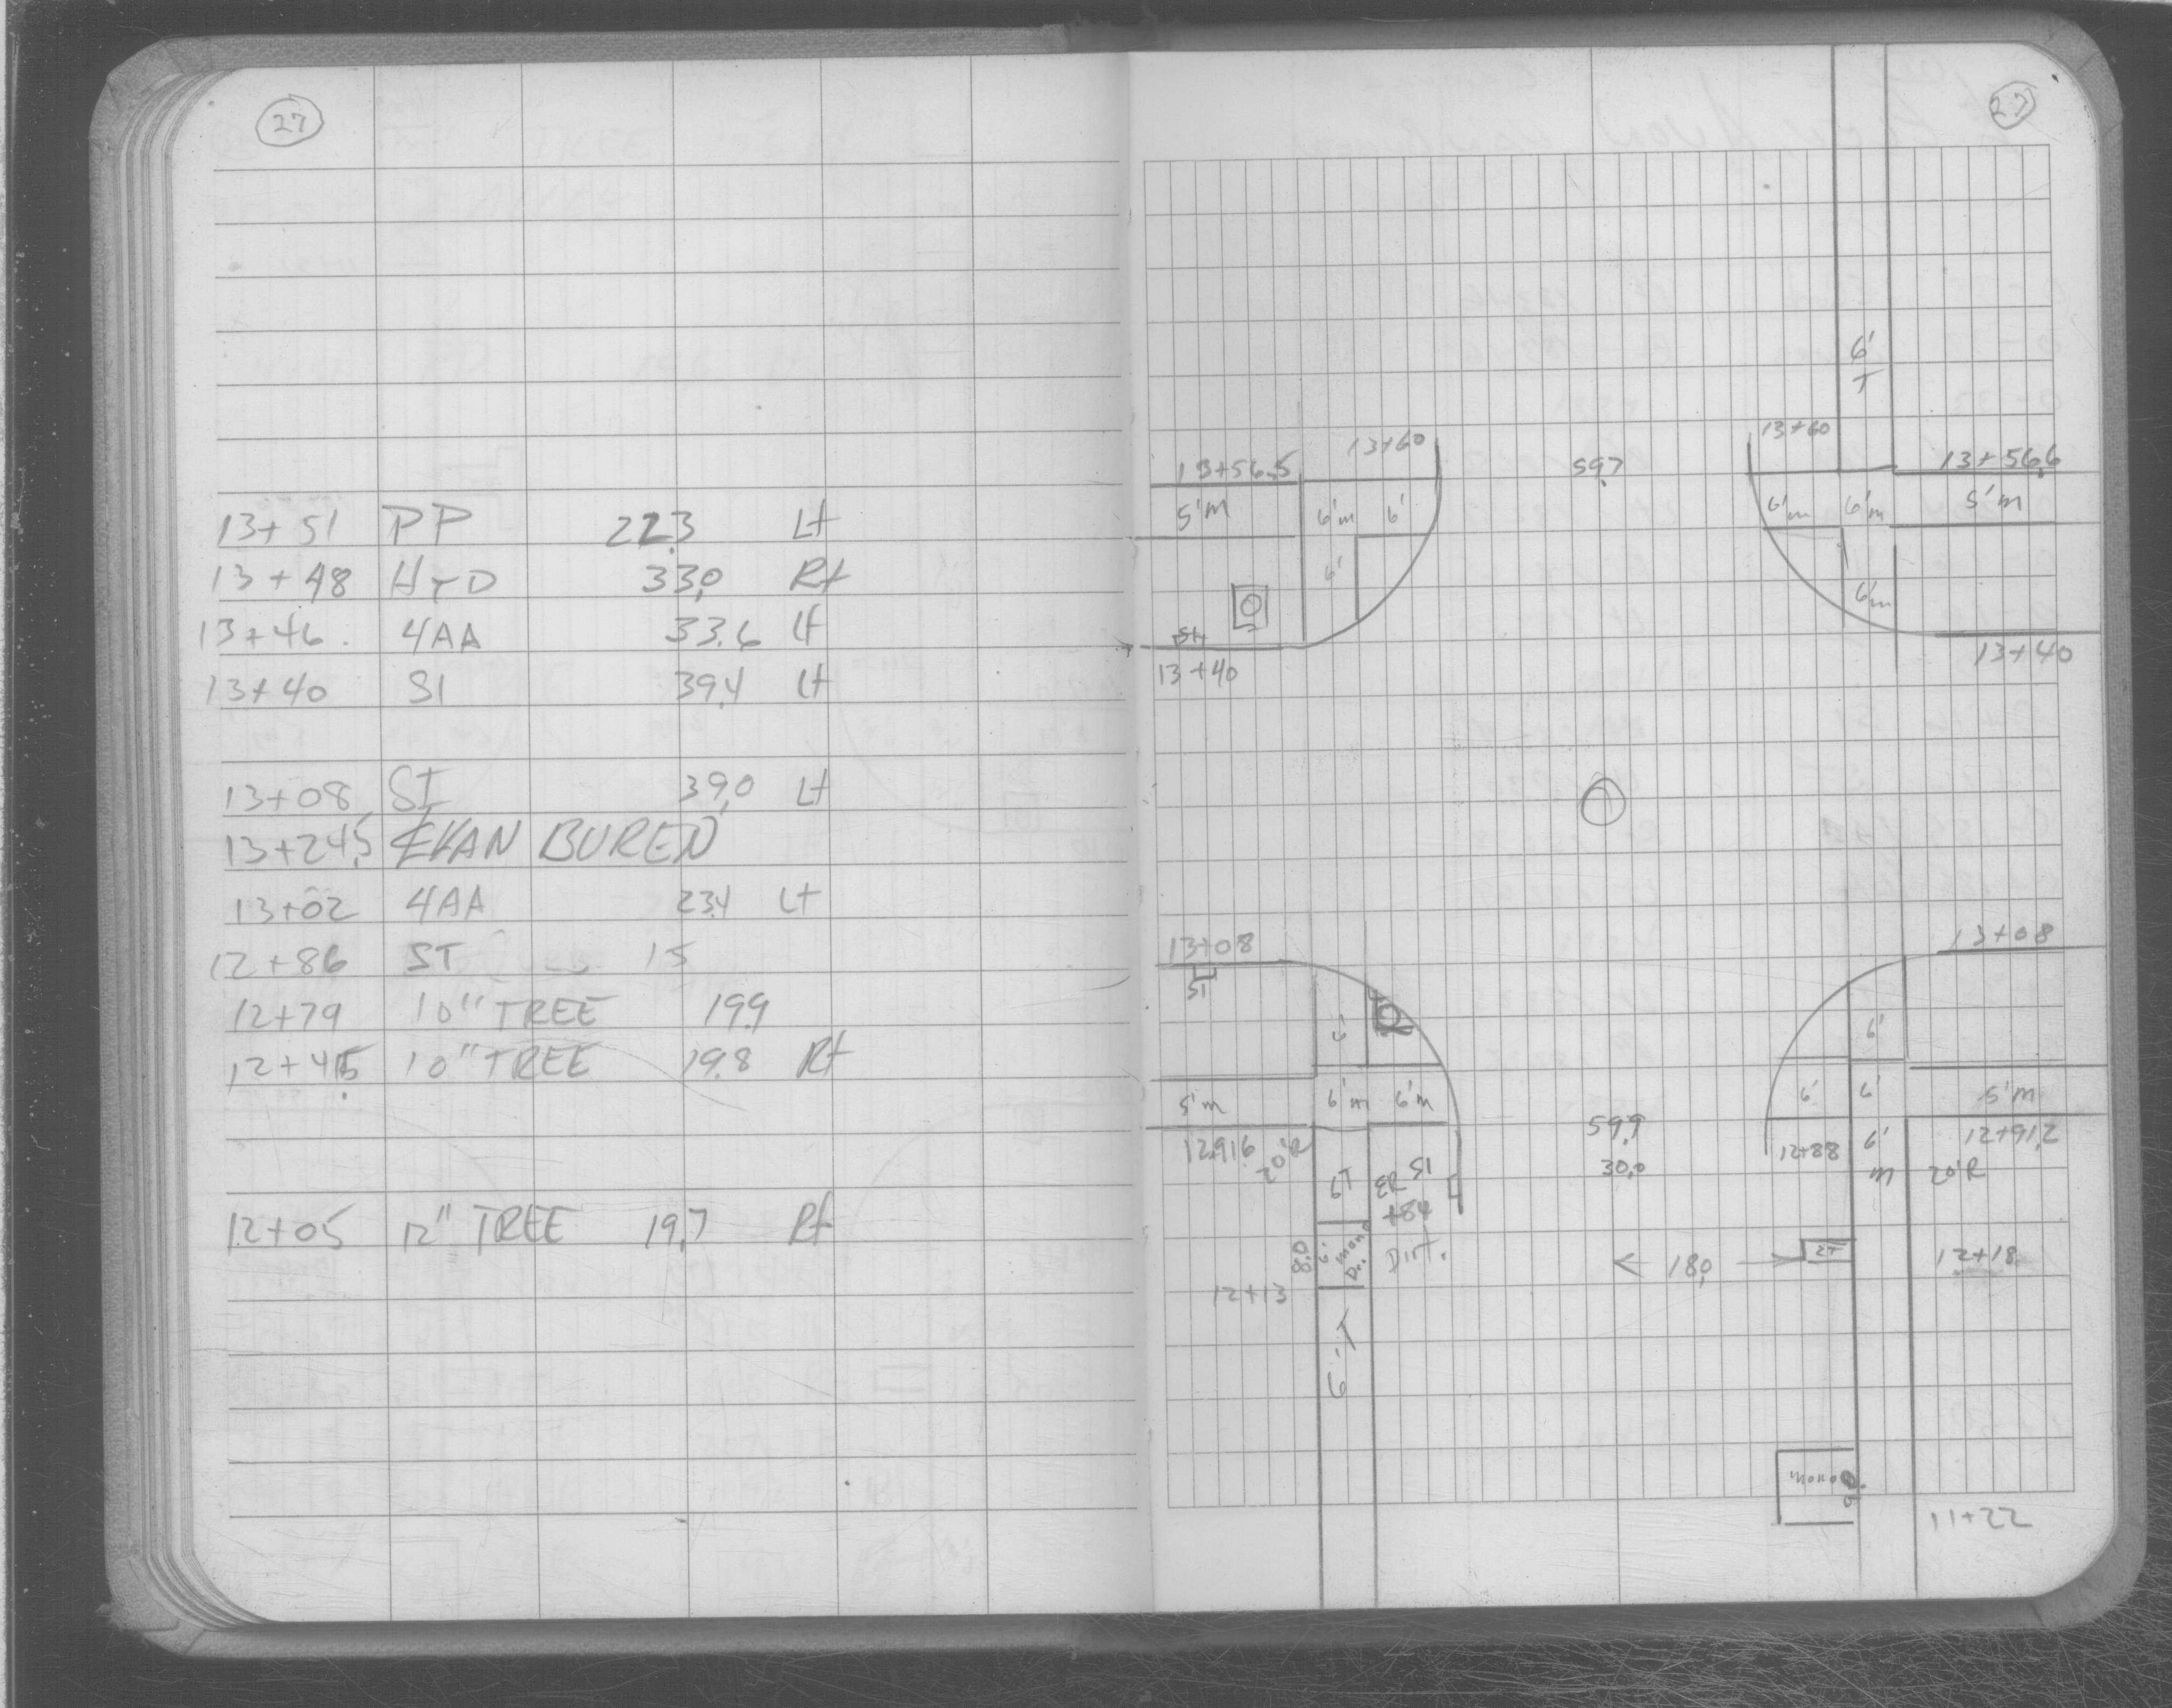 27
13+51 PP 22.3 Lt
13+48 HYD 33.0 Rt
13+46 4AA 33.6 Lt
13+40 SI 39.4 Lt
13+08 SI 39.0 Lt
13+24.5 ℄ VAN BUREN
13+02 4AA 23.4 Lt
12+86 ST 15
12+79 10" TREE 19.9
12+45 10" TREE 19.8 Rt
12+05 12" TREE 19.7 Rt
27
6'
T
13+60 13+60
13+56.5 59.7 13+56.6
5'm 6'm 6' 6'm 6'm 5'm
6' 6'm
SI
13+40 13+40
13+08 13+08
SI
6' 6'
5'm 6'm 6'm 6' 6' 5'm
12+91.6 20'R 59.9 12+88 6' 12+91.2
30.0 m 20'R
6T ER SI
+84
8.0 6' mono Dr. Dirt. ← 18.0 → 12+18
12+13
6'T
mono
11+22